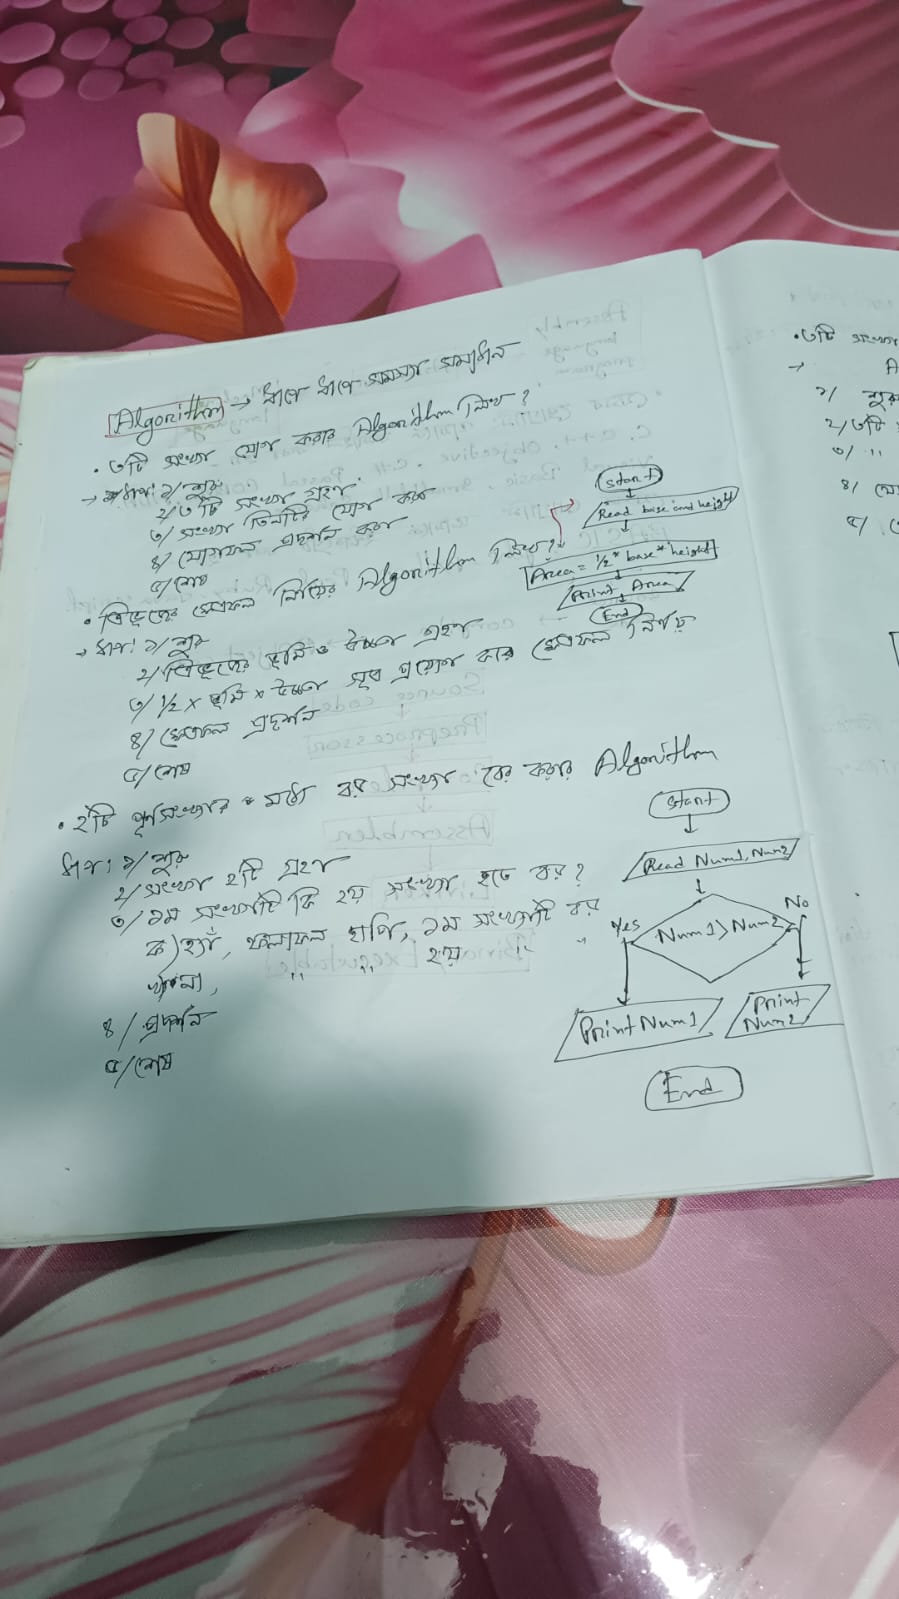 Algorithm → ধাপে ধাপে সমস্যা সমাধান
• ৩টি সংখ্যা যোগ করার Algorithm লিখ?
→ ধাপ: ১/ শুরু
২/ ৩টি সংখ্যা গ্রহণ
৩/ সংখ্যা তিনটির যোগ করা
৪/ যোগফল প্রদর্শন করা
৫/ শেষ
• ত্রিভুজের ক্ষেত্রফল নির্ণয়ের Algorithm লিখ?
→ ধাপ: ১/ শুরু
২/ ত্রিভুজের ভূমি ও উচ্চতা গ্রহণ
৩/ 1/2 × ভূমি × উচ্চতা সূত্র প্রয়োগ করে ক্ষেত্রফল নির্ণয়
৪/ ক্ষেত্রফল প্রদর্শন
৫/ শেষ
Start
Read base and height
Area = 1/2 * base * height
Print Area
End
• ২টি পূর্ণসংখ্যার মধ্যে বড় সংখ্যা বের করার Algorithm
ধাপ: ১/ শুরু
২/ সংখ্যা ২টি গ্রহণ
৩/ ১ম সংখ্যাটি কি ২য় সংখ্যা হতে বড়?
ক) হ্যাঁ, ফলাফল হাপি, ১ম সংখ্যাটি বড়
খ) না, " " ২য় " "
৪/ প্রদর্শন
৫/ শেষ
Start
Read Num1, Num2
Yes Num1 > Num2 No
Print Num1
Print Num2
End
• ৩টি সংখ্যা
→
১/ শুরু
২/ ৩টি
৩/ "
৪/
৫/